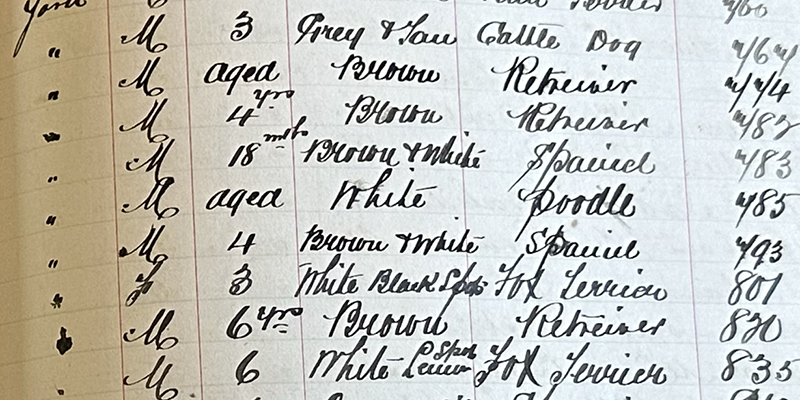 " M 3 Grey & Tan Cattle Dog
" M aged Brown Retreiver 774
" M 4 yrs Brown Retreiver 782
" M 18 mths Brown & White Spaniel 783
" M aged White Poodle 785
" M 4 Brown & White Spaniel 793
" F 3 White Black Spots Fox Terrier 801
" M 6 yrs Brown Retreiver 830
" M 6 White Lemon Spots Fox Terrier 835